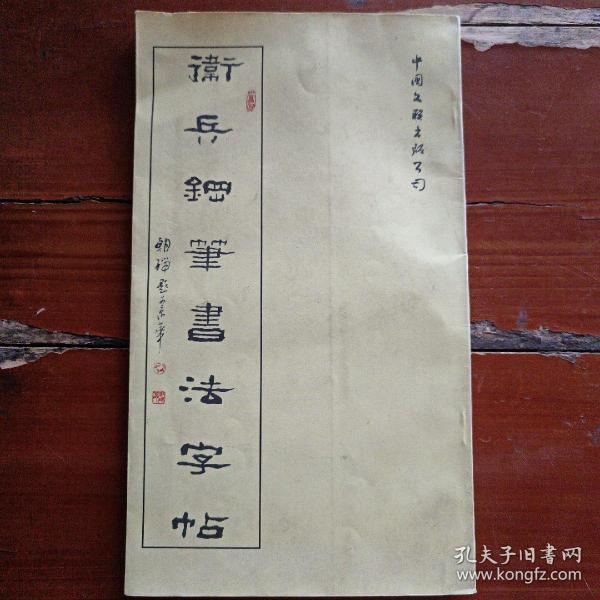 中国文联出版公司
衛兵鋼筆書法字帖
孔夫子旧书网
www.kongfz.com